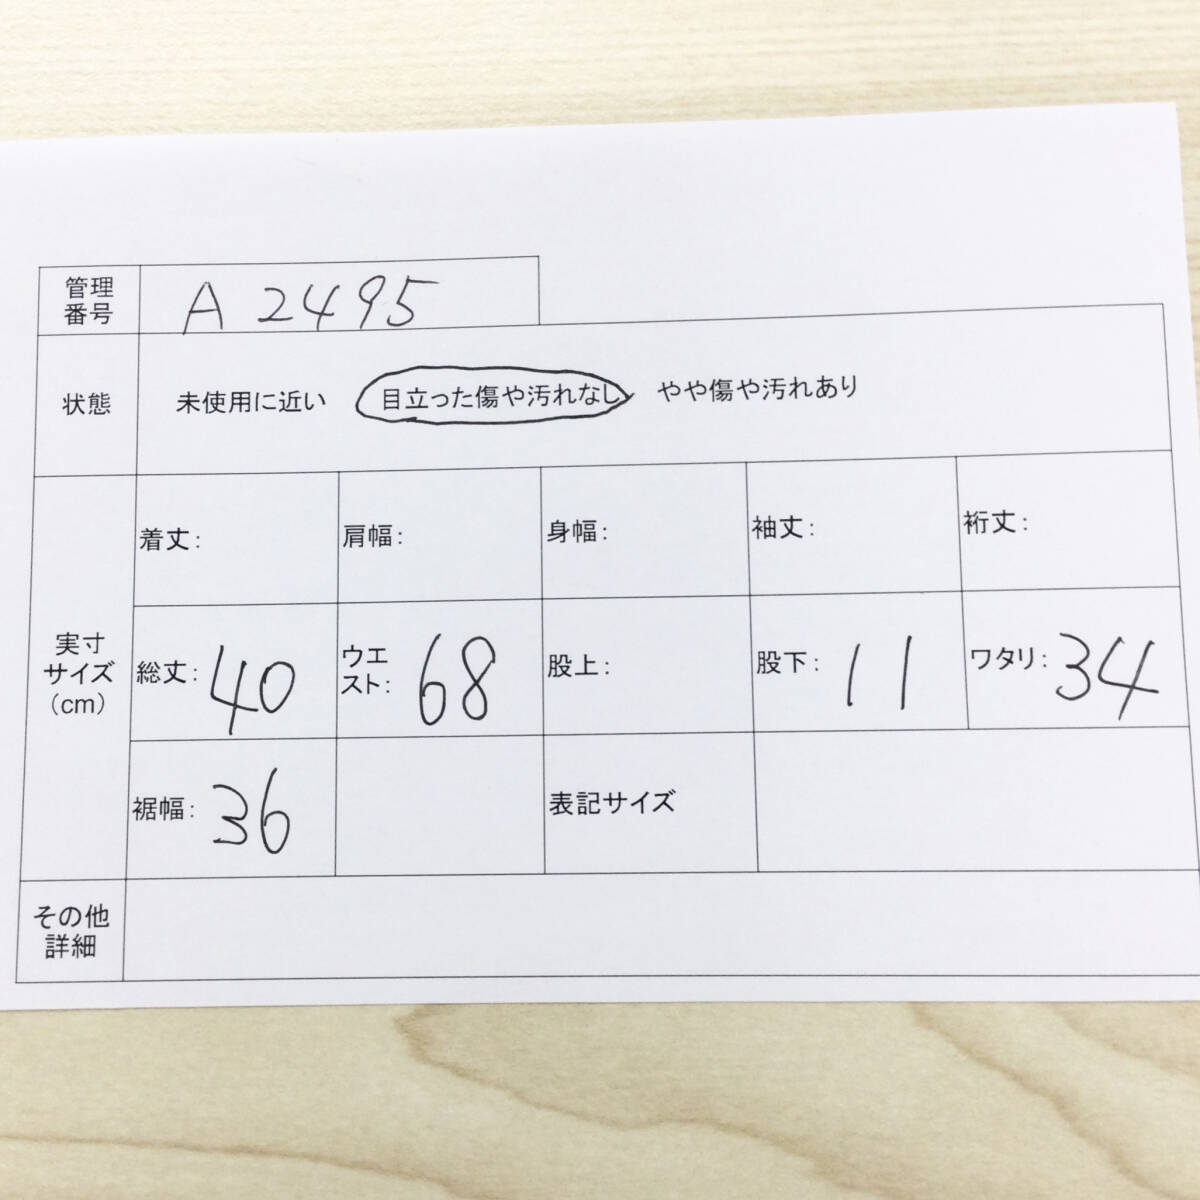 管理
番号
A2495
状態
未使用に近い 目立った傷や汚れなし やや傷や汚れあり
実寸
サイズ
(cm)
着丈: 肩幅: 身幅: 袖丈: 裄丈:
総丈: 40 ウエ
スト: 68 股上: 股下: 11 ワタリ: 34
裾幅: 36 表記サイズ
その他
詳細